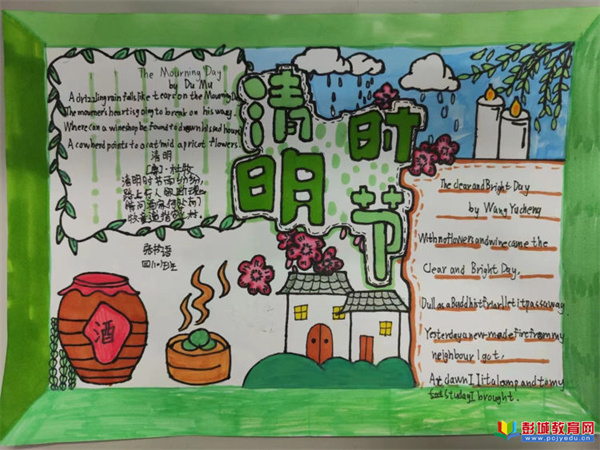 The Mourning Day
by Du Mu
A drizzling rain falls like tears on the Mourning Day
The mourner's heart is going to break on his way.
Where can a wineshop be found to drown his sad hours?
A cowherd points to a cot mid apricot flowers.
清明
[唐]·杜牧
清明时节雨纷纷,
路上行人欲断魂。
借问酒家何处有
牧童遥指杏花村。
清明
时节
酒
The clear and Bright Day
by Wang Yucheng
With no flowers and wine came the
Clear and Bright Day.
Dull as a Buddhist friar I let it pass away
Yesterday a new-made fire from my
neighbour I got.
At dawn I lit a lamp and to my
study I brought.
彭城教育网
www.pcjyedu.cn